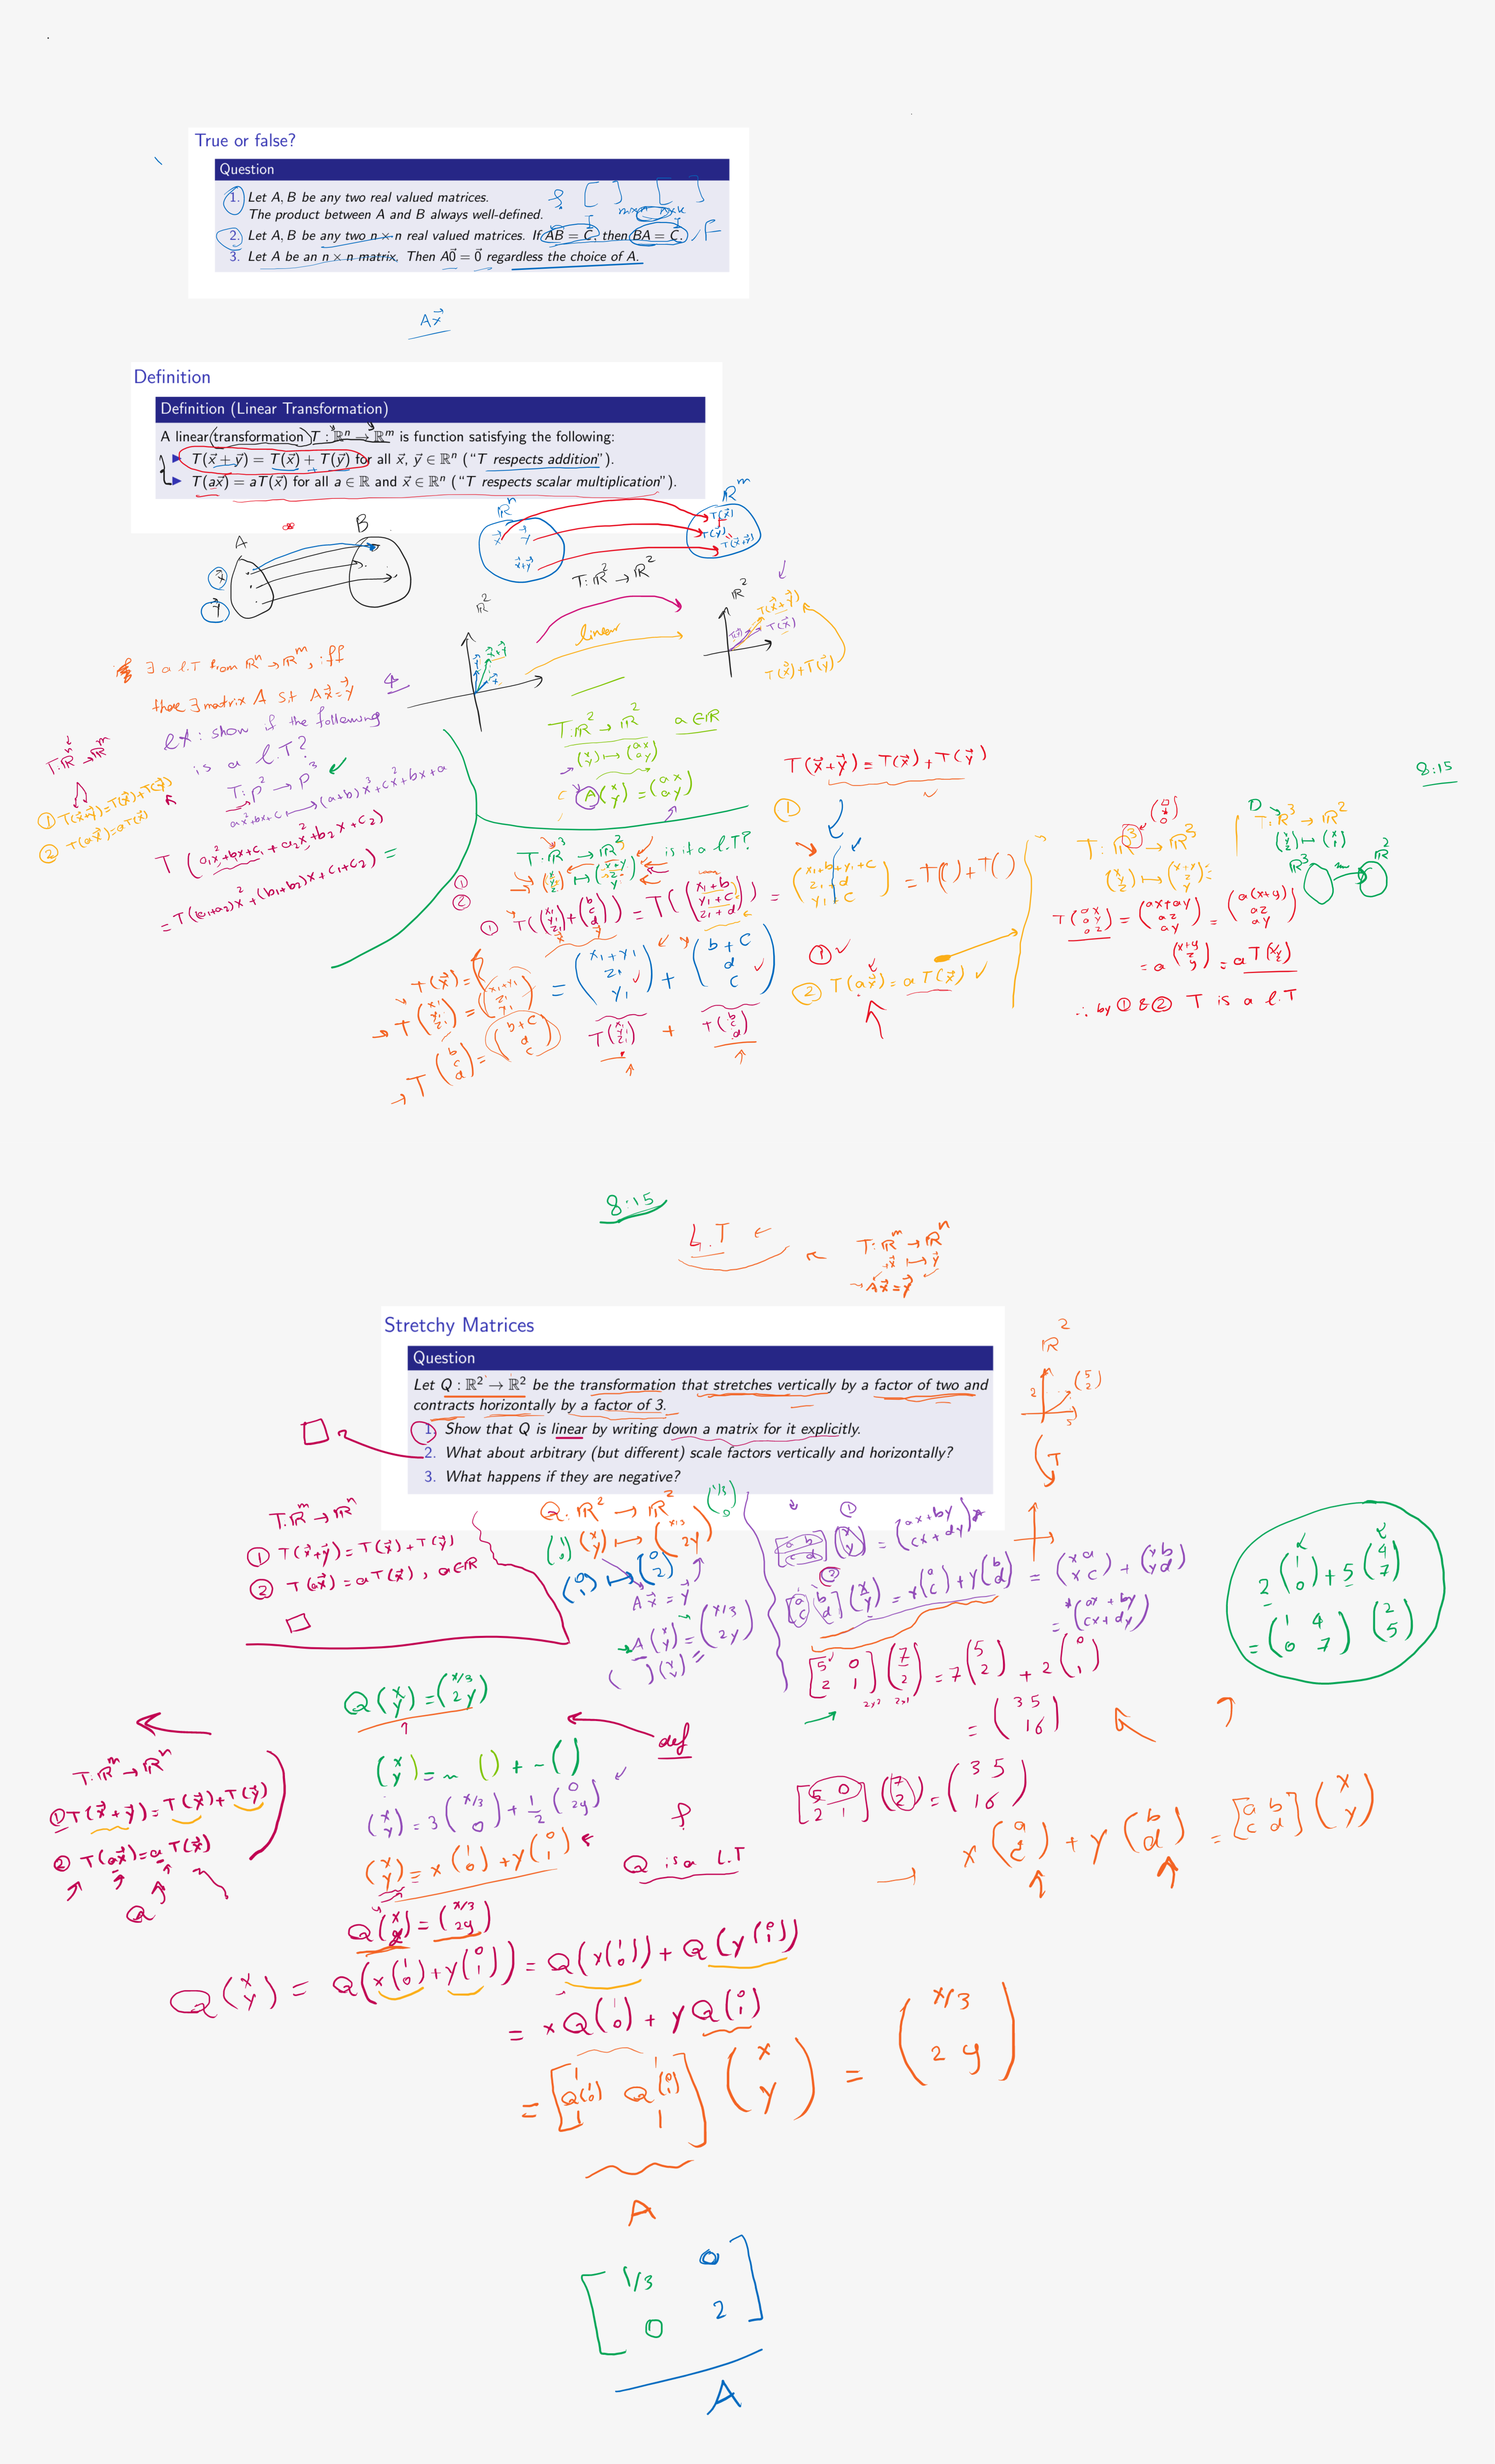 True or false?
Question
1. Let A, B be any two real valued matrices.
The product between A and B always well-defined.
2. Let A, B be any two n × n real valued matrices. If AB = C, then BA = C.
3. Let A be an n × n matrix. Then A0⃗ = 0⃗ regardless the choice of A.
[ ] [ ]
m×n n×k
F
Ax⃗
Definition
Definition (Linear Transformation)
A linear transformation T : ℝⁿ → ℝᵐ is function satisfying the following:
▶ T(x⃗ + y⃗) = T(x⃗) + T(y⃗) for all x⃗, y⃗ ∈ ℝⁿ (“T respects addition”).
▶ T(ax⃗) = aT(x⃗) for all a ∈ ℝ and x⃗ ∈ ℝⁿ (“T respects scalar multiplication”).
A B
x⃗
y⃗
ℝⁿ ℝᵐ
x⃗ y⃗ x⃗+y⃗
T(x⃗)
T(y⃗)
T(x⃗+y⃗)
T: ℝ² → ℝ²
ℝ² ℝ²
linear
x⃗+y⃗
T(x⃗+y⃗)
T(x⃗)
T(x⃗)+T(y⃗)
∃ a l.T from ℝⁿ → ℝᵐ, iff
there ∃ matrix A s.t Ax⃗=y⃗
ex: show if the following
is a l.T?
T: P² → P³
ax²+bx+c ↦ (a+b)x³+cx²+bx+a
T: ℝⁿ → ℝᵐ
① T(x⃗+y⃗)=T(x⃗)+T(y⃗)
② T(ax⃗)=aT(x⃗)
T(a₁x²+b₁x+c₁ + a₂x²+b₂x+c₂)
= T((a₁+a₂)x²+(b₁+b₂)x+c₁+c₂) =
T: ℝ² → ℝ² a∈ℝ
(x y) ↦ (ax ay)
A(x y) = (ax ay)
T(x⃗+y⃗)=T(x⃗)+T(y⃗)
①
T: ℝ³ → ℝ³ is it a l.T?
(x y z) ↦ (x+y z y)
①
②
① T((x₁ y₁ z₁)+(b c d)) = T((x₁+b y₁+c z₁+d)) = (x₁+b+y₁+c z₁+d y₁+c) = T( )+T( )
= (x₁+y₁ z₁ y₁) + (b+c d c)
T(x₁ y₁ z₁) + T(b c d)
T(x⃗)=
T(x₁ y₁ z₁) = (x₁+y₁ z₁ y₁)
T(b c d) = (b+c d c)
① ✓
② T(ax⃗)=aT(x⃗) ✓
T: ℝ³ → ℝ³
(x y z) ↦ (x+y z y)
T: ℝ³ → ℝ²
ℝ³ ℝ²
T(ax ay az) = (ax+ay az ay) = (a(x+y) az ay)
= a(x+y z y) = aT(x y z)
∴ by ① & ② T is a l.T
8:15
8:15
L.T ←
T: ℝᵐ → ℝⁿ
x⃗ ↦ y⃗
Ax⃗=y⃗
Stretchy Matrices
Question
Let Q : ℝ² → ℝ² be the transformation that stretches vertically by a factor of two and
contracts horizontally by a factor of 3.
1. Show that Q is linear by writing down a matrix for it explicitly.
2. What about arbitrary (but different) scale factors vertically and horizontally?
3. What happens if they are negative?
ℝ²
2 (5 2)
5
T
T: ℝᵐ → ℝⁿ
① T(x⃗+y⃗)=T(x⃗)+T(y⃗)
② T(ax⃗)=aT(x⃗), a∈ℝ
Q: ℝ² → ℝ²
(1 0) (x y) ↦ (x/3 2y) (1/3 0)
(0 1) ↦ (0 2)
Ax⃗=y⃗
A(x y) = (x/3 2y)
( )(x y) =
①
[a b c d](x y) = (ax+by cx+dy)*
②
[a b c d](x y) = x(a c)+y(b d) = (xa xc)+(yb yd)
= *(ax+by cx+dy)
[5 0 2 1](7 2) = 7(5 2) + 2(0 1)
2×2 2×1
= (35 16)
2(1 0)+5(4 7)
= (1 4 0 7)(2 5)
Q(x y) = (x/3 2y)
def
(x y) = ~( ) + ~( )
(x y) = 3(x/3 0) + 1/2(0 2y)
(x y) = x(1 0)+y(0 1)
Q(x y) = (x/3 2y)
Q is a L.T
[5 0 2 1](7 2) = (35 16)
→ x(a c) + y(b d) = [a b c d](x y)
T: ℝᵐ → ℝⁿ
① T(x⃗+y⃗)=T(x⃗)+T(y⃗)
② T(ax⃗)=aT(x⃗)
Q
Q(x y) = Q(x(1 0)+y(0 1)) = Q(x(1 0))+Q(y(0 1))
= xQ(1 0)+yQ(0 1)
= [Q(1 0) Q(0 1)](x y) = (x/3 2y)
A
[1/3 0
0 2]
A